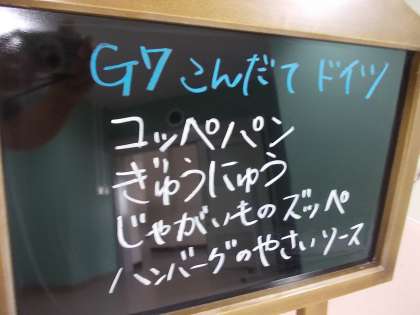 G7 こんだて ドイツ
コッペパン
ぎゅうにゅう
じゃがいものズッペ
ハンバーグのやさいソース